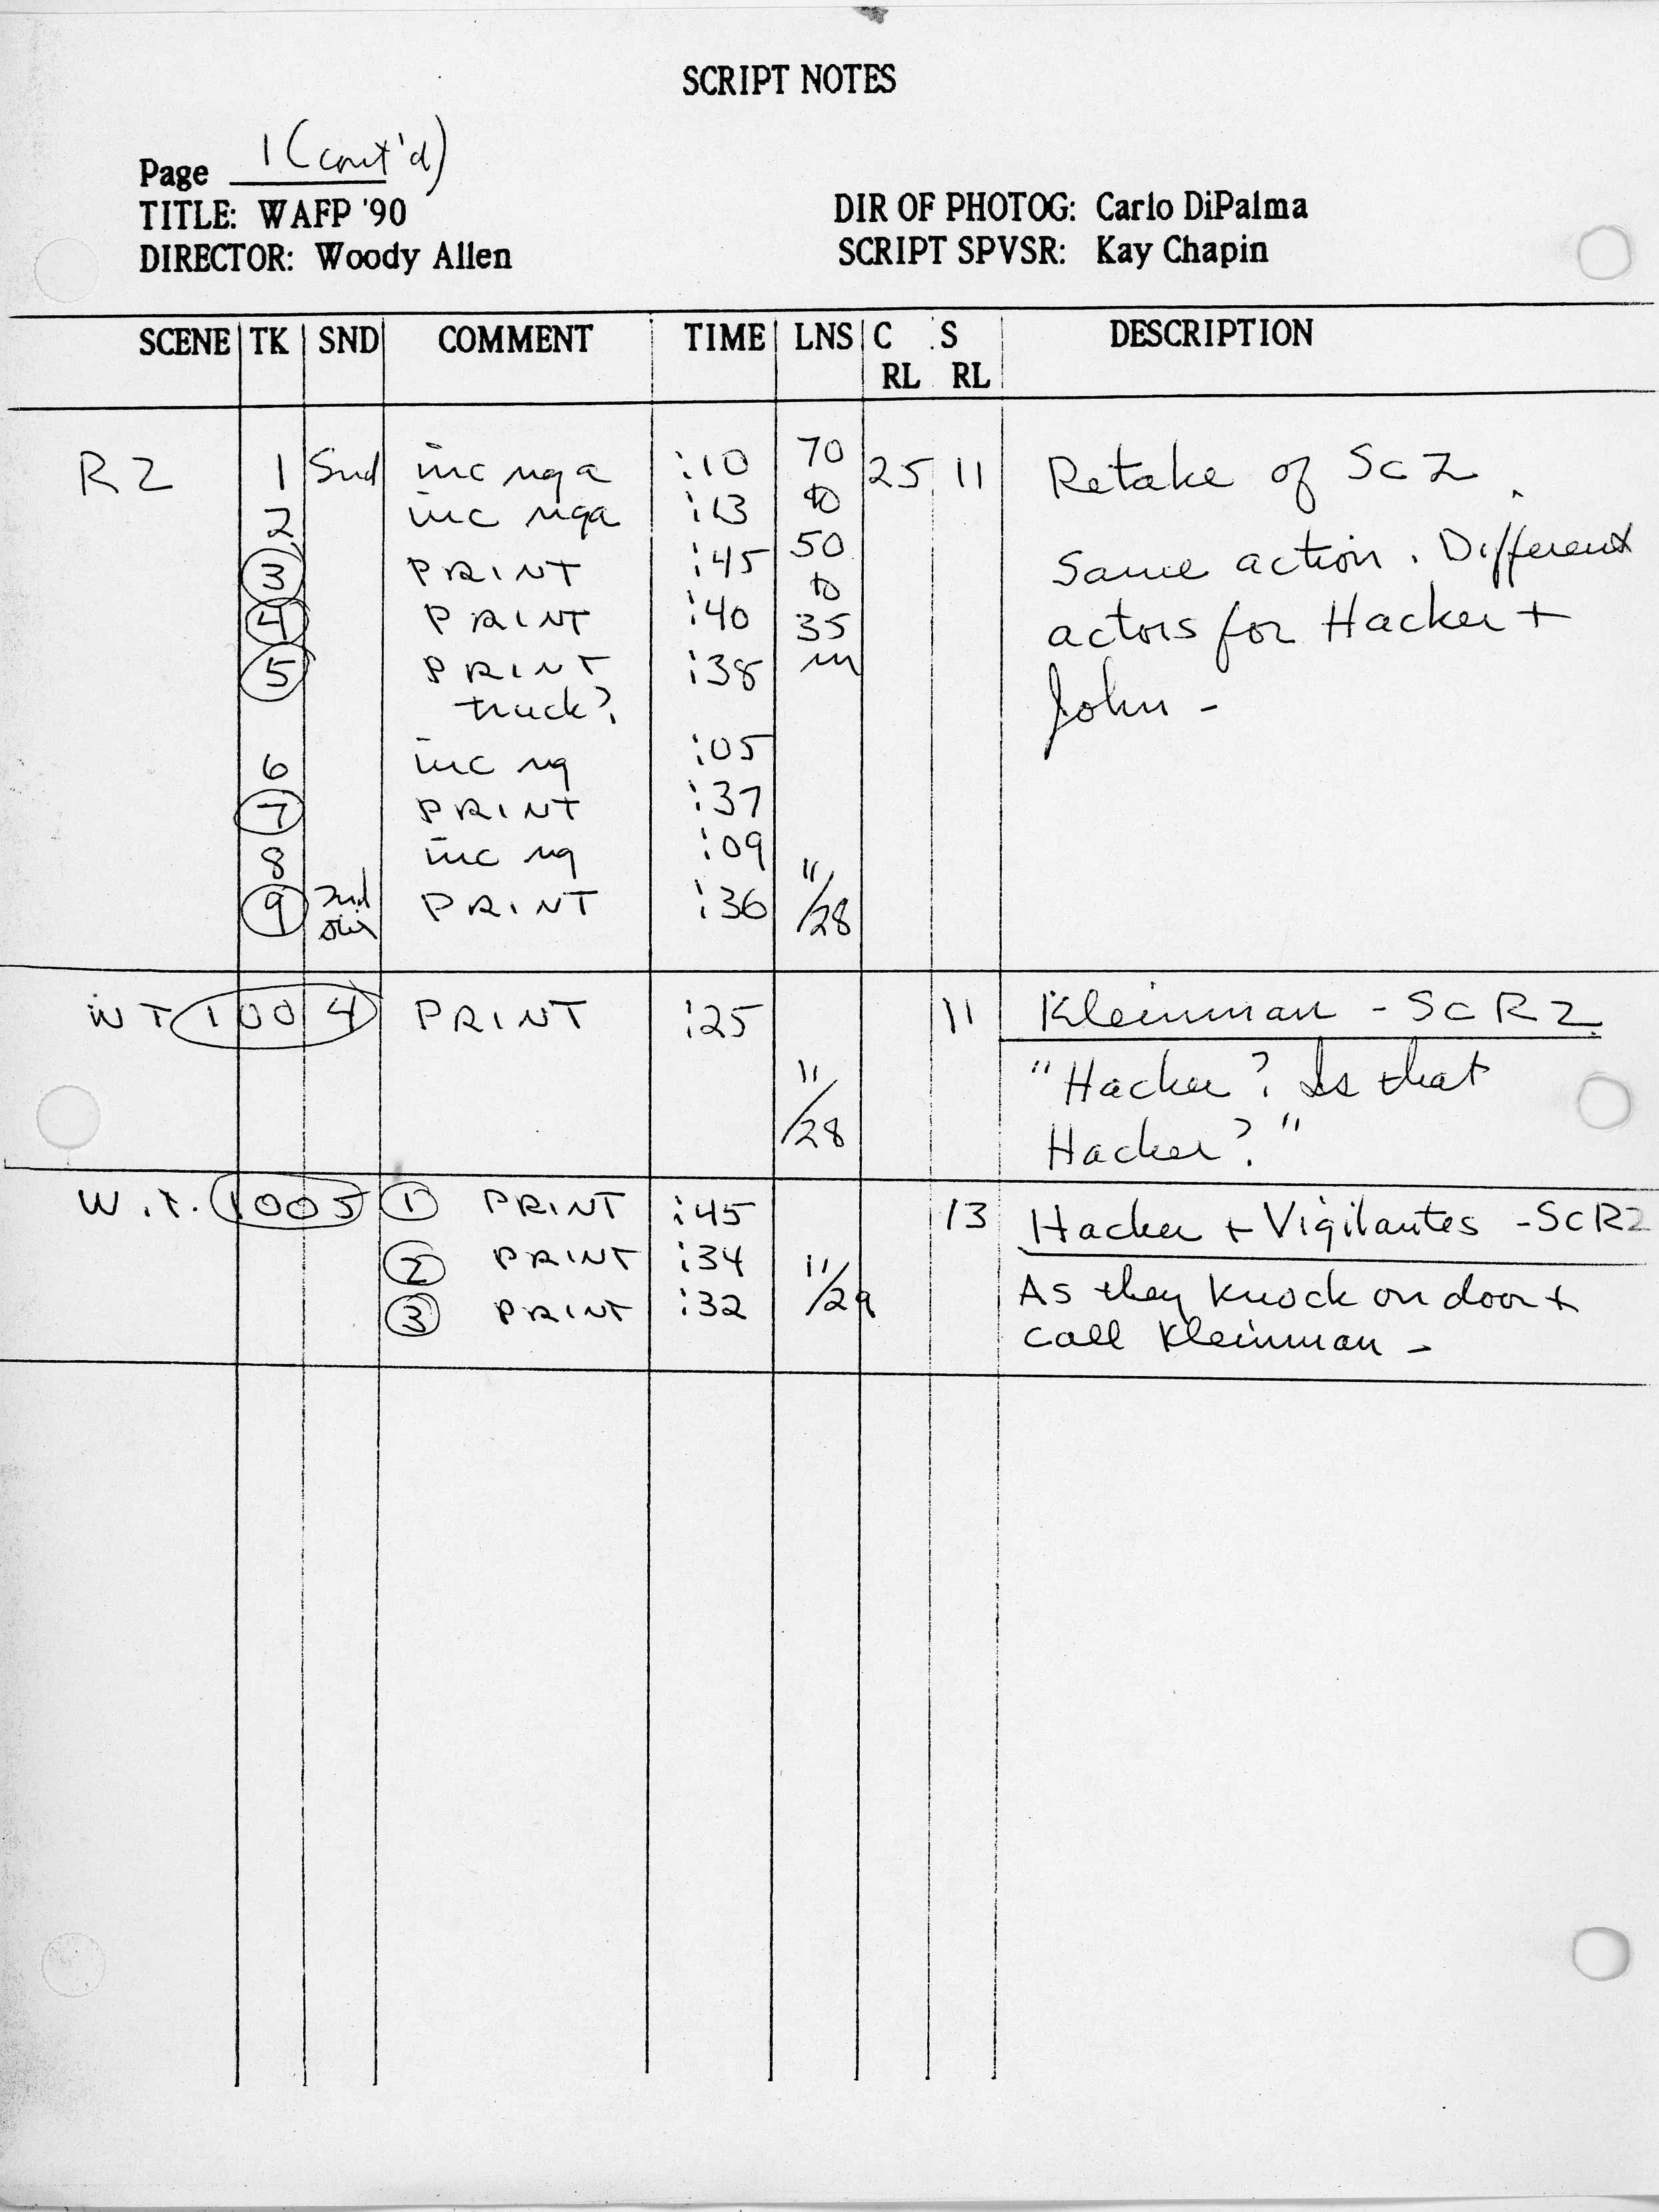 SCRIPT NOTES
Page 1 (cont'd)
TITLE: WAFP '90
DIRECTOR: Woody Allen
DIR OF PHOTOG: Carlo DiPalma
SCRIPT SPVSR: Kay Chapin
SCENE TK SND COMMENT TIME LNS C RL S RL DESCRIPTION
R2 1 Snd inc nga :10 70 25 11 Retake of Sc 2.
2 inc nga :13 to
3 PRINT :45 50 Same action. Different
4 PRINT :40 to 35 actors for Hacker +
5 PRINT :38 in John -
truck?
6 inc ng :05
7 PRINT :37
8 inc ng :09
9 snd PRINT :36 11/28
WT 1004 PRINT :25 11 Kleinman - Sc R2
"Hacker? Is that
11/28 Hacker?"
W.T. 1005 1 PRINT :45 13 Hacker + Vigilantes - Sc R2
2 PRINT :34 11/29 As they knock on door +
3 PRINT :32 call Kleinman -